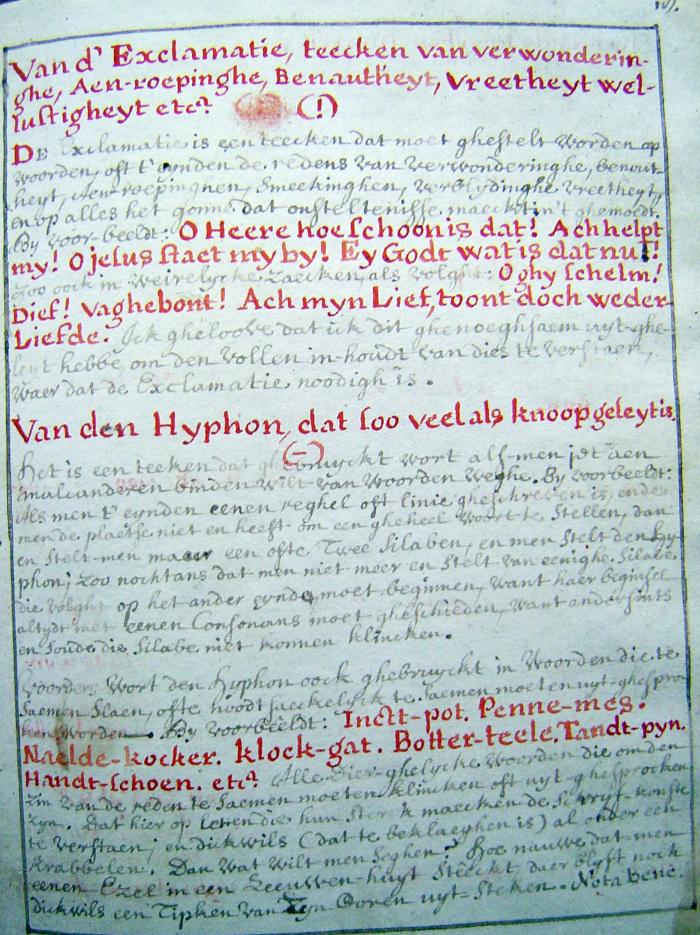 Van d' Exclamatie, teecken van verwonderin-
ghe, Aen-roepinghe, Benautheyt, Vreetheyt wel-
lustigheyt etc?
(!)
DE Exclamatie is een teecken dat moet ghestelt worden op
woorden, oft t'eynden de redens van verwonderinghe, benout-
heyt, Aen-roepinghen, Smeekinghen, verblydinghe vreetheyt,
en op alles het gonne dat onsteltenisse maeckt in't ghemoedt.
By voor-beeldt: O Heere hoe schoon is dat! Ach helpt
my! O jesus staet my by! Ey Godt wat is dat nu!!
Zoo oock in weirelycke zaecken, als volght: O ghy schelm!
Dief! vaghebont! Ach myn Lief, toont doch weder-
Liefde. Ick gheloove dat ick dit ghenoeghsaem uyt-ghe-
leyt hebbe om den vollen in-houdt van dies te verstaen,
waer dat de Exclamatie noodigh is.
Van den Hyphon, dat soo veel als knoop geleyt is.
(-)
Het is een teeken dat ghebruyckt wort als-men jet aen
malcanderen binden wilt van woorden weghe. By voorbeeldt:
Als men t'eynden eenen reghel oft linie gheschreven is, ende
men de plaetse niet en heeft om een gheheel woort te Stellen, dan
en Stelt-men maer een ofte Twee Silaben, en men Stelt den Hy-
phon; Zoo nochtans dat men niet meer en Stelt van eenighe Silabe
die volght op het ander eynde moet beginnen, want haer beginsel
altydt met eenen Consonans moet gheschieden, want andersints
en Soude die Silabe niet konnen klincken.
Voorders wort den Hyphon oock ghebruyckt in woorden die te
Saemen Slaen, ofte noodtsaeckelyck te Saemen moeten uyt-ghespro-
ken worden. By voorbeeldt: Inctt-pot. Penne-mes.
Naelde-kocker. klock-gat. Botter-teele. Tandt-pyn.
Handt-schoen. etc? Alle dier-ghelycke woorden die om den
Zin van de reden te Saemen moeten klincken oft uyt-ghesprocken
Zyn. Dat hier op letten die hun Sterck maecken de Schryf-konste
te verstaen; en dickwils (dat te beklaeghen is) al onder een
krabbelen. Dan wat wilt men Seghen? Hoe nauwe dat men
eenen Ezel in een Leeuwen-huyt Steeckt, daer blyft noch
dickwils een Tipken van Zyn Ooren uyt-Steken. Nota bene.